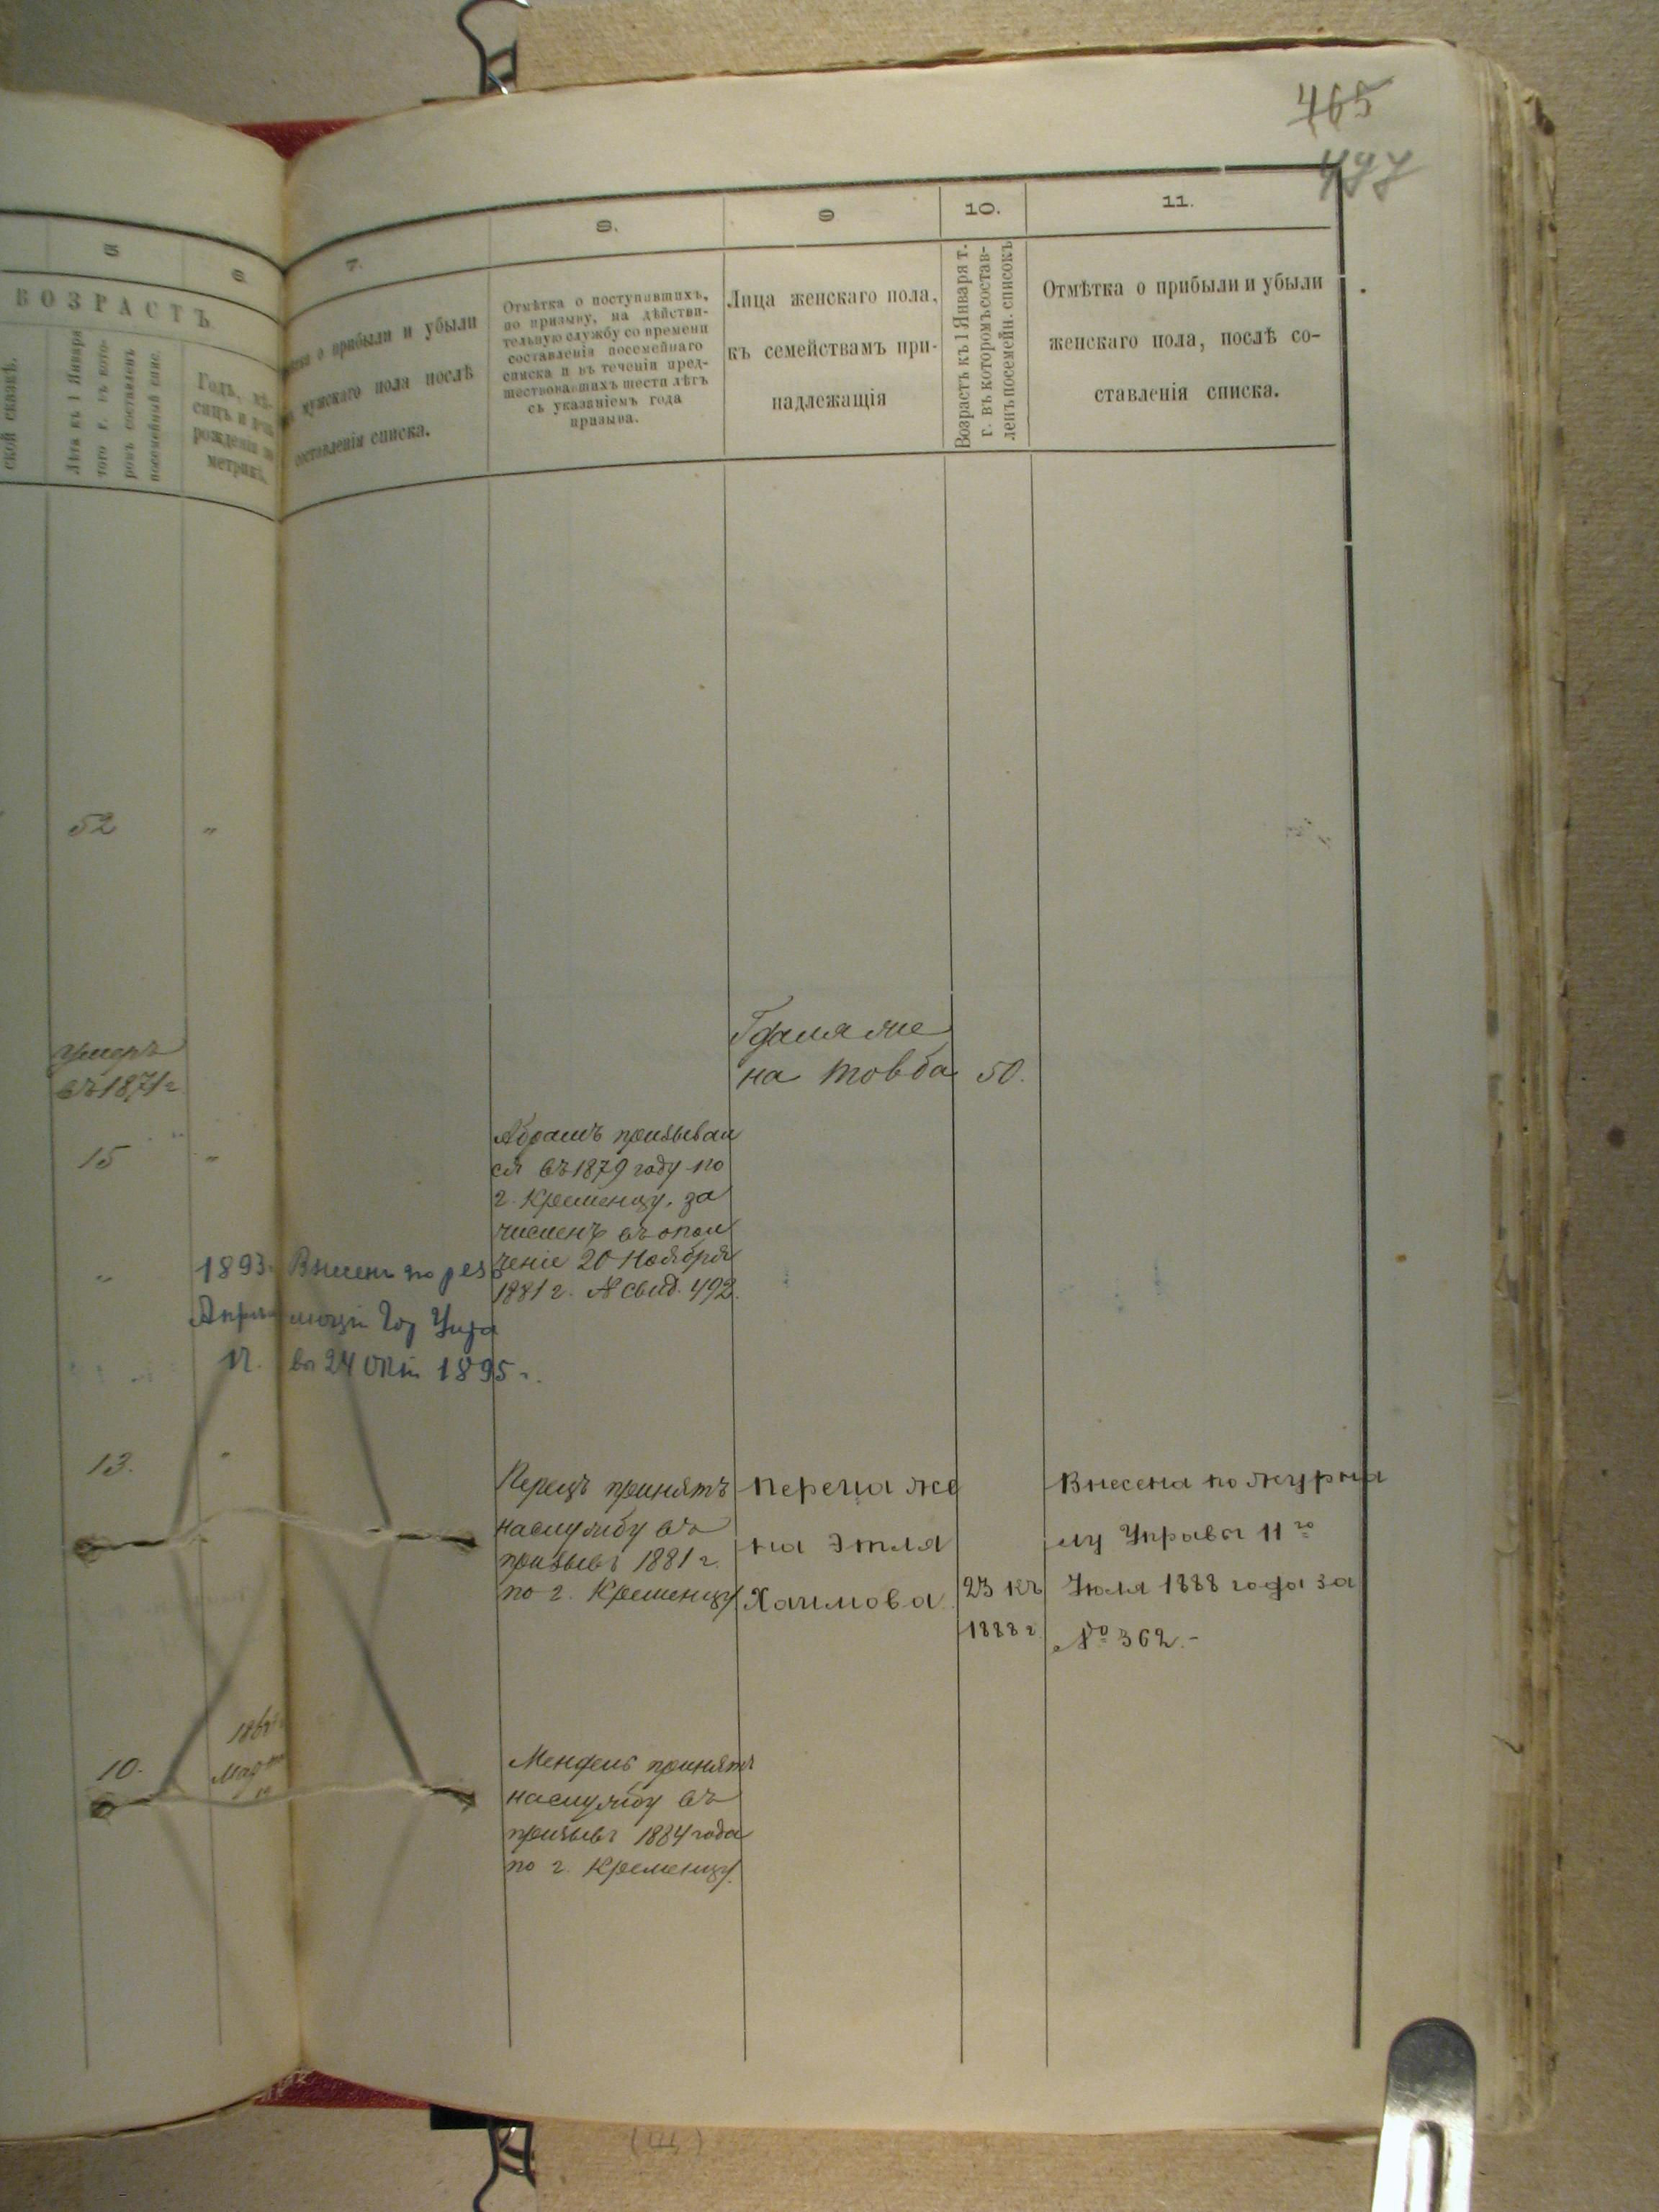 465
497
5
6.
7.
8.
9
10.
11.
ВОЗРАСТЪ
ской сказкѣ.
Лѣта къ 1 Января
того г. въ кото-
ромъ составленъ
посемейный спис.
Годъ, мѣ-
сяцъ и день
рожденія по
метрикѣ.
о прибыли и убыли
мужскаго пола послѣ
составленія списка.
Отмѣтка о поступившихъ,
по призыву, на дѣйстви-
тельную службу со времени
составленія посемейнаго
списка и въ теченіи пред-
шествовавшихъ шести лѣтъ
съ указаніемъ года
призыва.
Лица женскаго пола,
къ семействамъ при-
надлежащія
Возрастъ къ 1 Января т.
г. въ которомъ состав-
ленъ посемейн. списокъ
Отмѣтка о прибыли и убыли
женскаго пола, послѣ со-
ставленія списка.
52 "
умеръ
въ 1871 г
Гдаля же
на Товба 50.
15 "
Абрамъ призывал
ся въ 1879 году по
г. Кременцу, за
численъ въ опол
ченіе 20 Ноября
1881 г. № свид. 492.
" 1893 Внесенъ по рез
Апрѣ люціи Гор Упра
12. вы 24 Окт 1895 г.
13. "
Перецъ принятъ
на службу въ
призывъ 1881 г.
по г. Кременцу
Переца же
на Этля
Хаимова
23 къ
1888 г.
Внесена по журна
лу Управы 11го
Іюля 1888 года за
№ 362.-
10.
Март
Мендель принятъ
на службу въ
призывъ 1884 года
по г. Кременцу.